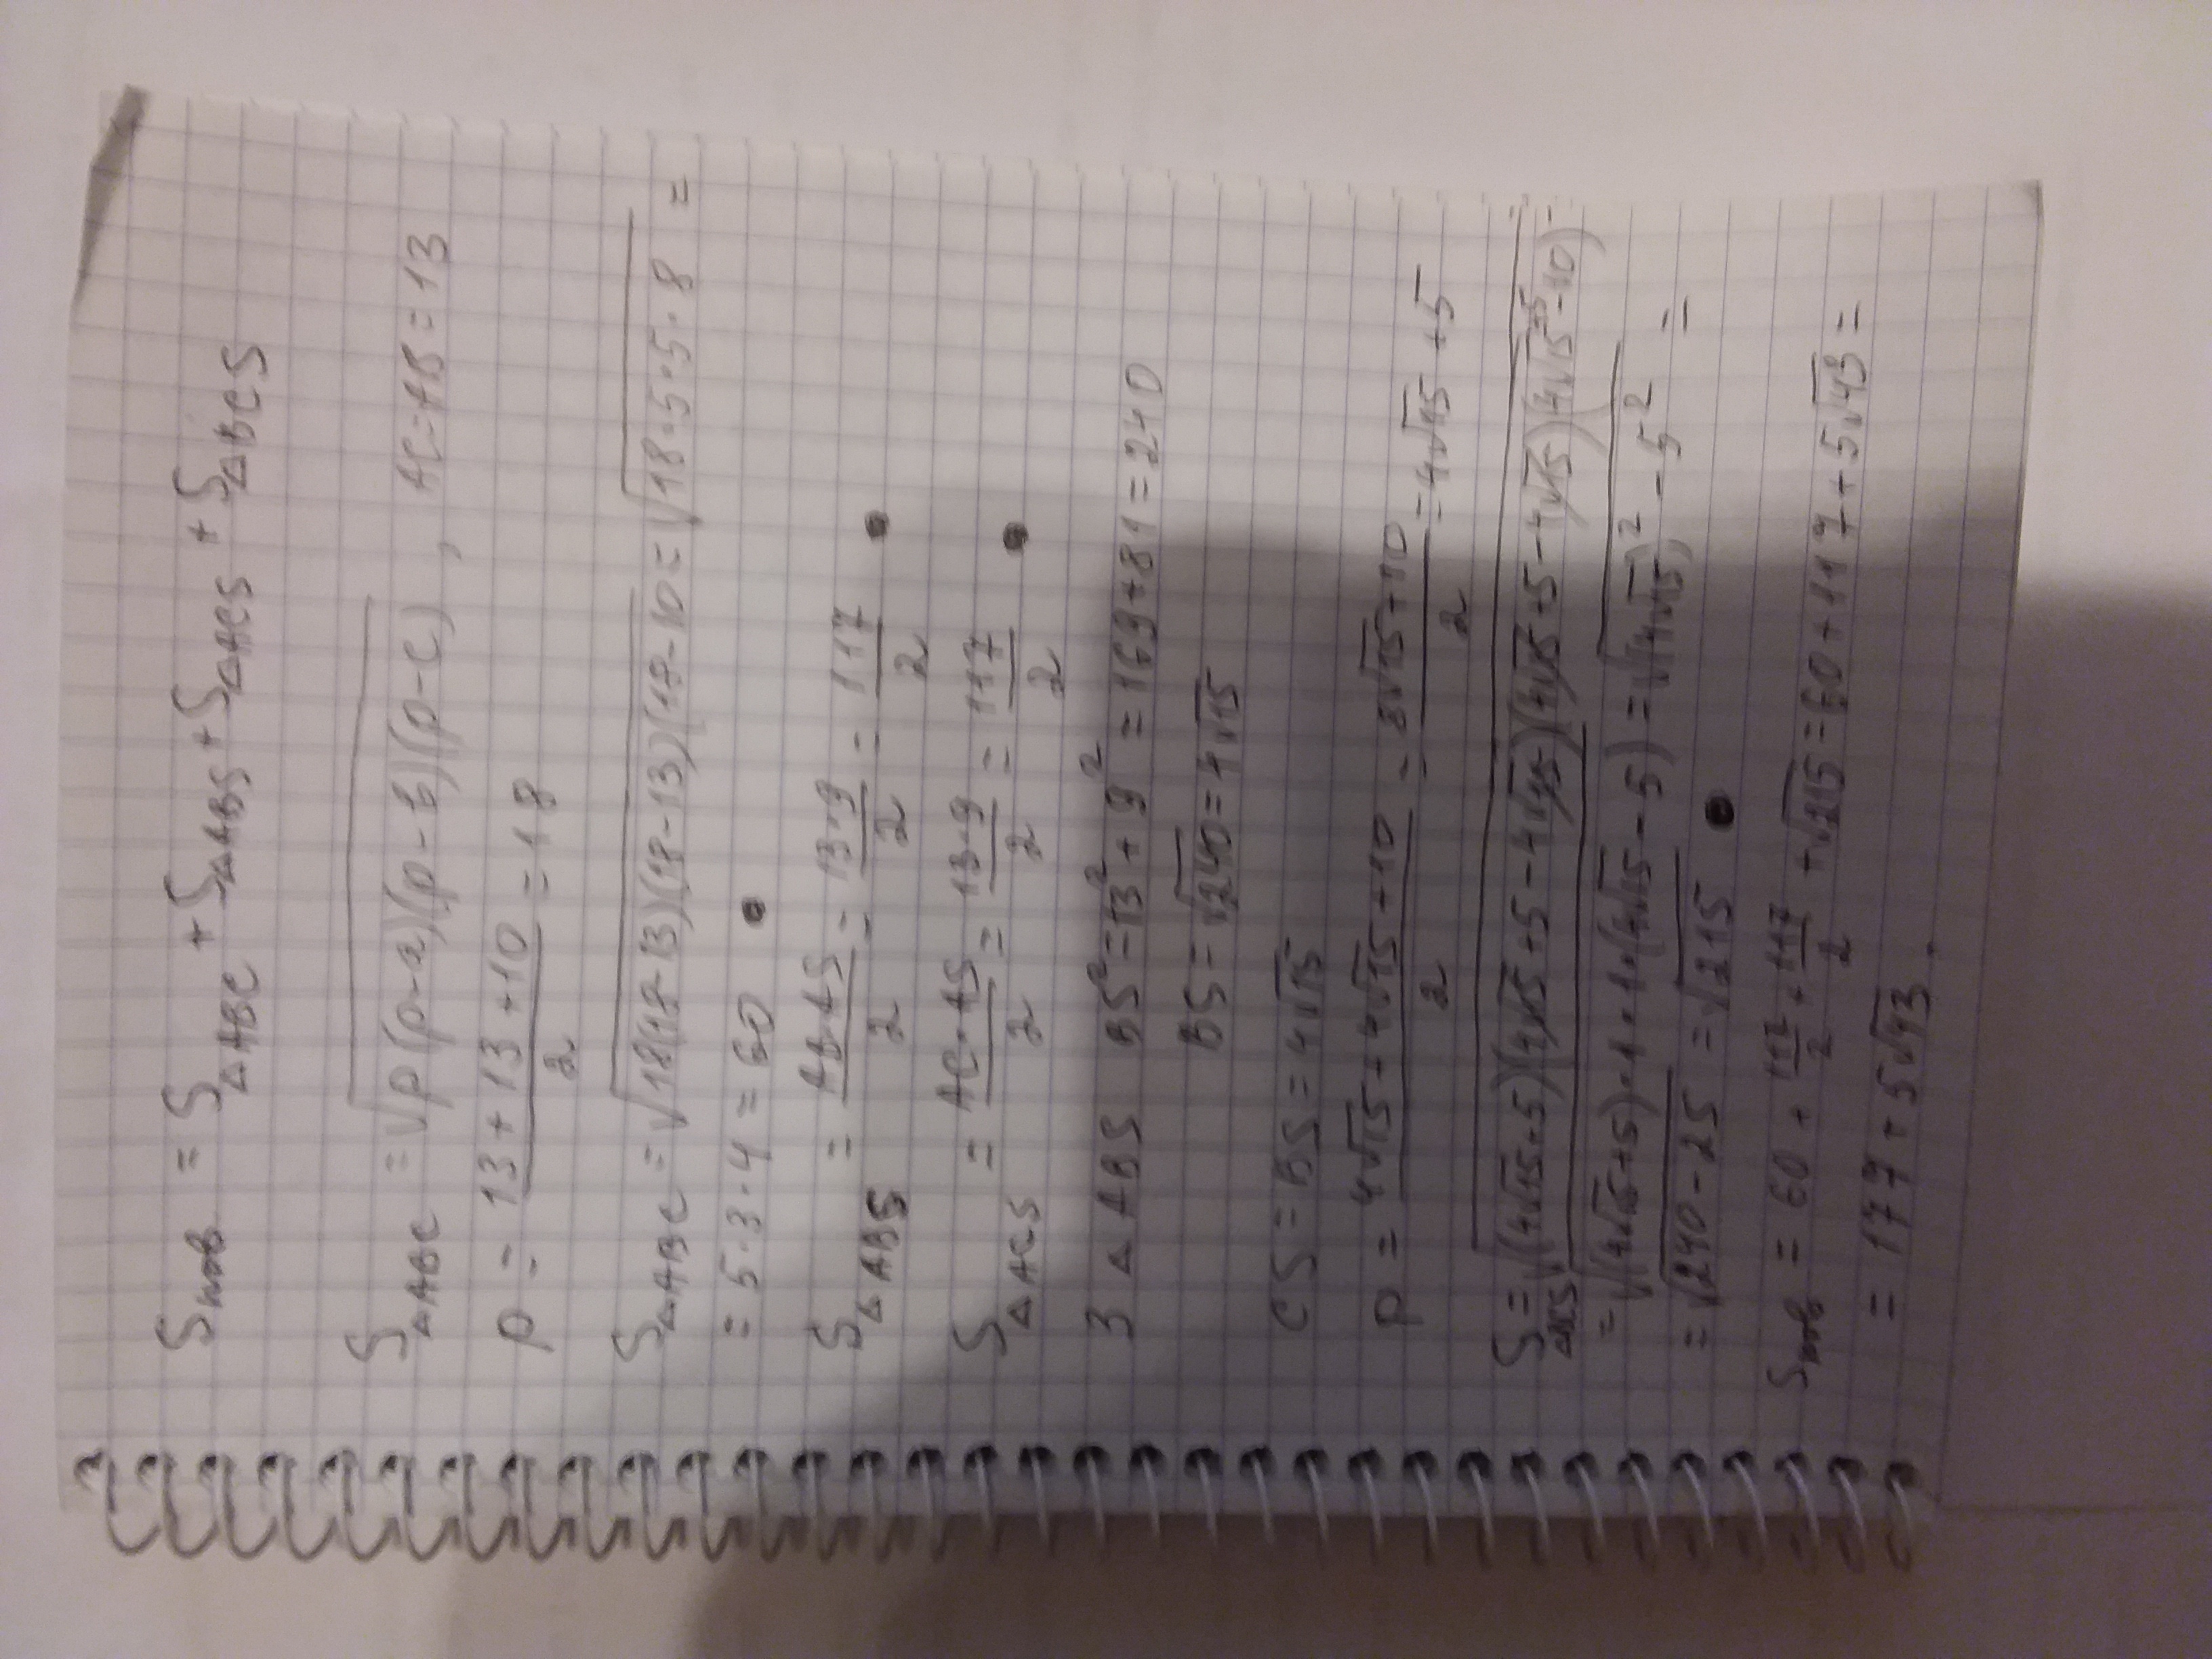 Sпов = S△ABC + S△ABS + S△ACS + S△BCS
S△ABC = √p(p-a)(p-b)(p-c) , AC=AB=13
p = 13+13+10/2 = 18
S△ABC = √18(18-13)(18-13)(18-10) = √18·5·5·8 =
= 5·3·4 = 60
S△ABS = AB·AS/2 = 13·9/2 = 117/2
S△ACS = AC·AS/2 = 13·9/2 = 117/2
З △ABS BS²=13²+9²=169+81=240
BS=√240=4√15
CS=BS=4√15
p = 4√15+4√15+10/2 = 8√15+10/2 = 4√15+5
S△BCS=√(4√15+5)(4√15+5-4√15)(4√15+5-4√15)(4√15+5-10) =
= √(4√15+5)·1·1·(4√15-5) = √(4√15)²-5² =
= √240-25 = √215
Sпов = 60 + 117/2 + 117/2 + √215 = 60+117+5√43 =
= 177+5√43.